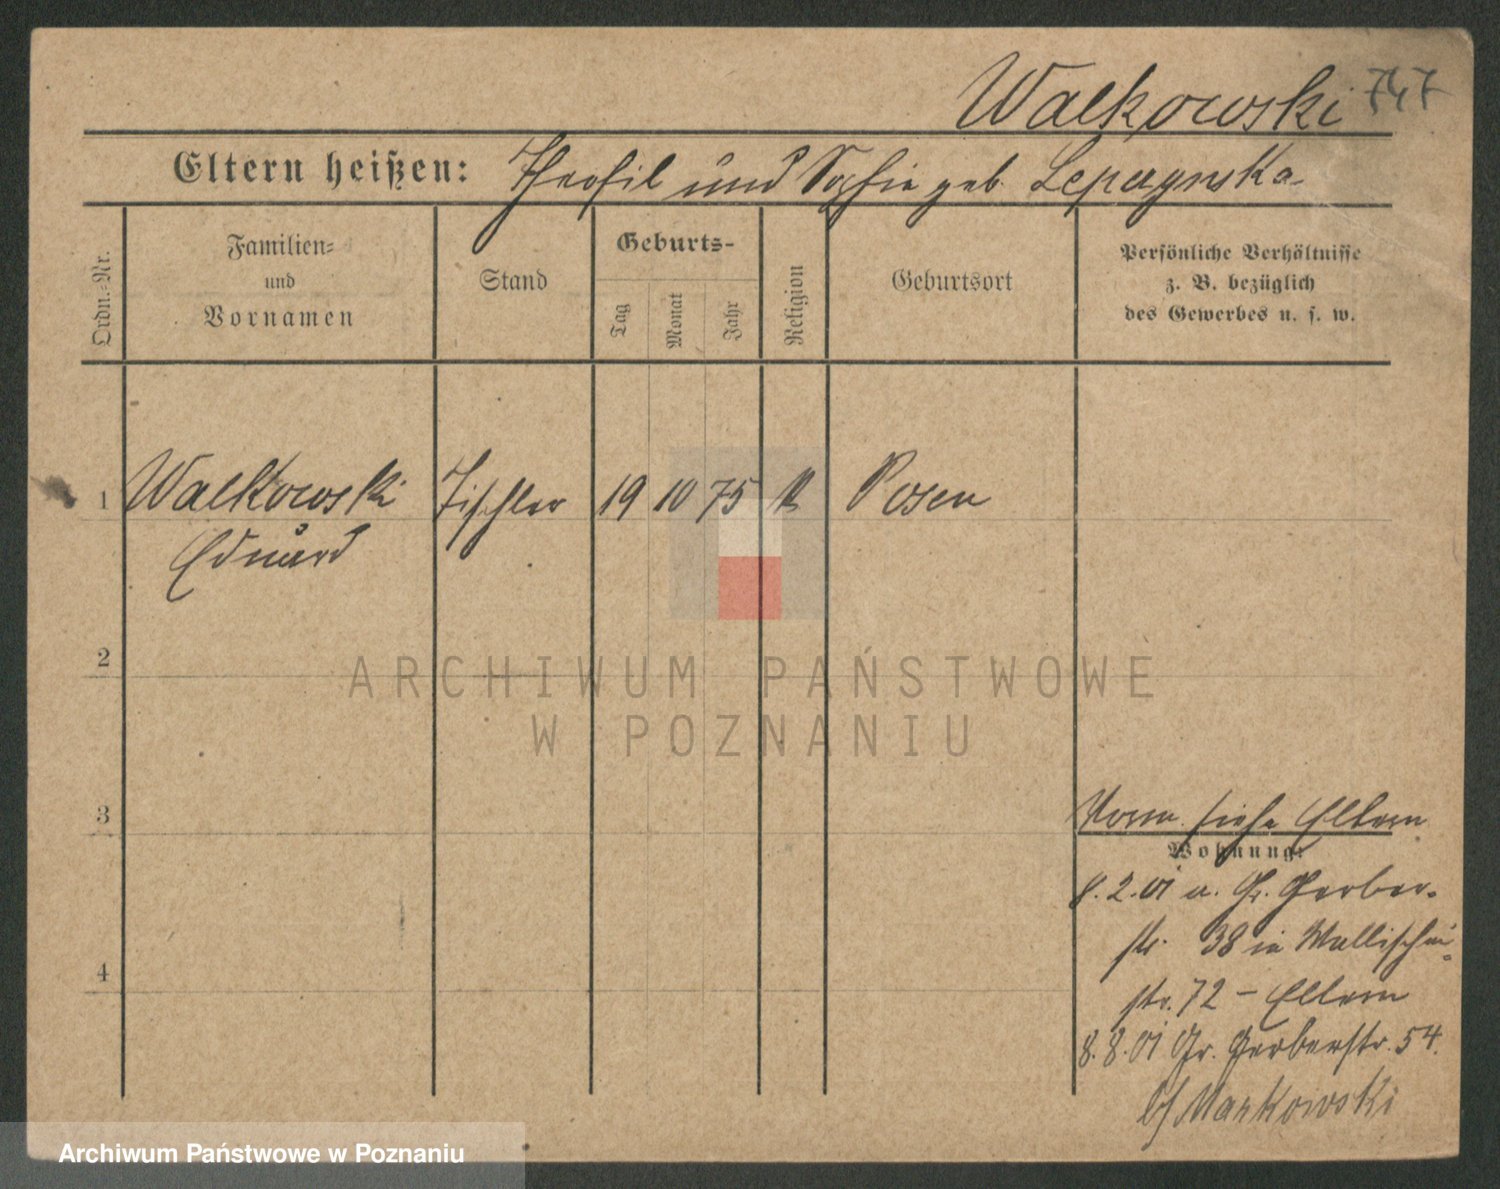 Walkowski 747
Eltern heißen: Theofil und Sophie geb. Lepczynska
Ordn.-Nr.
Familien-
und
Vornamen
Stand
Geburts-
Tag
Monat
Jahr
Religion
Geburtsort
Persönliche Verhältnisse
z. B. bezüglich
des Gewerbes u. s. w.
1 Walkowski Tischler 19 10 75 k Posen
Eduard
2
3
4
Vorm. siehe Eltern
Wohnung:
8.2.01 a. Gr. Gerber-
str. 38 in Wallischei-
str. 72 – Eltern
8.8.01 Gr. Gerberstr. 54.
b/ Markowski
ARCHIWUM PAŃSTWOWE
W POZNANIU
Archiwum Państwowe w Poznaniu